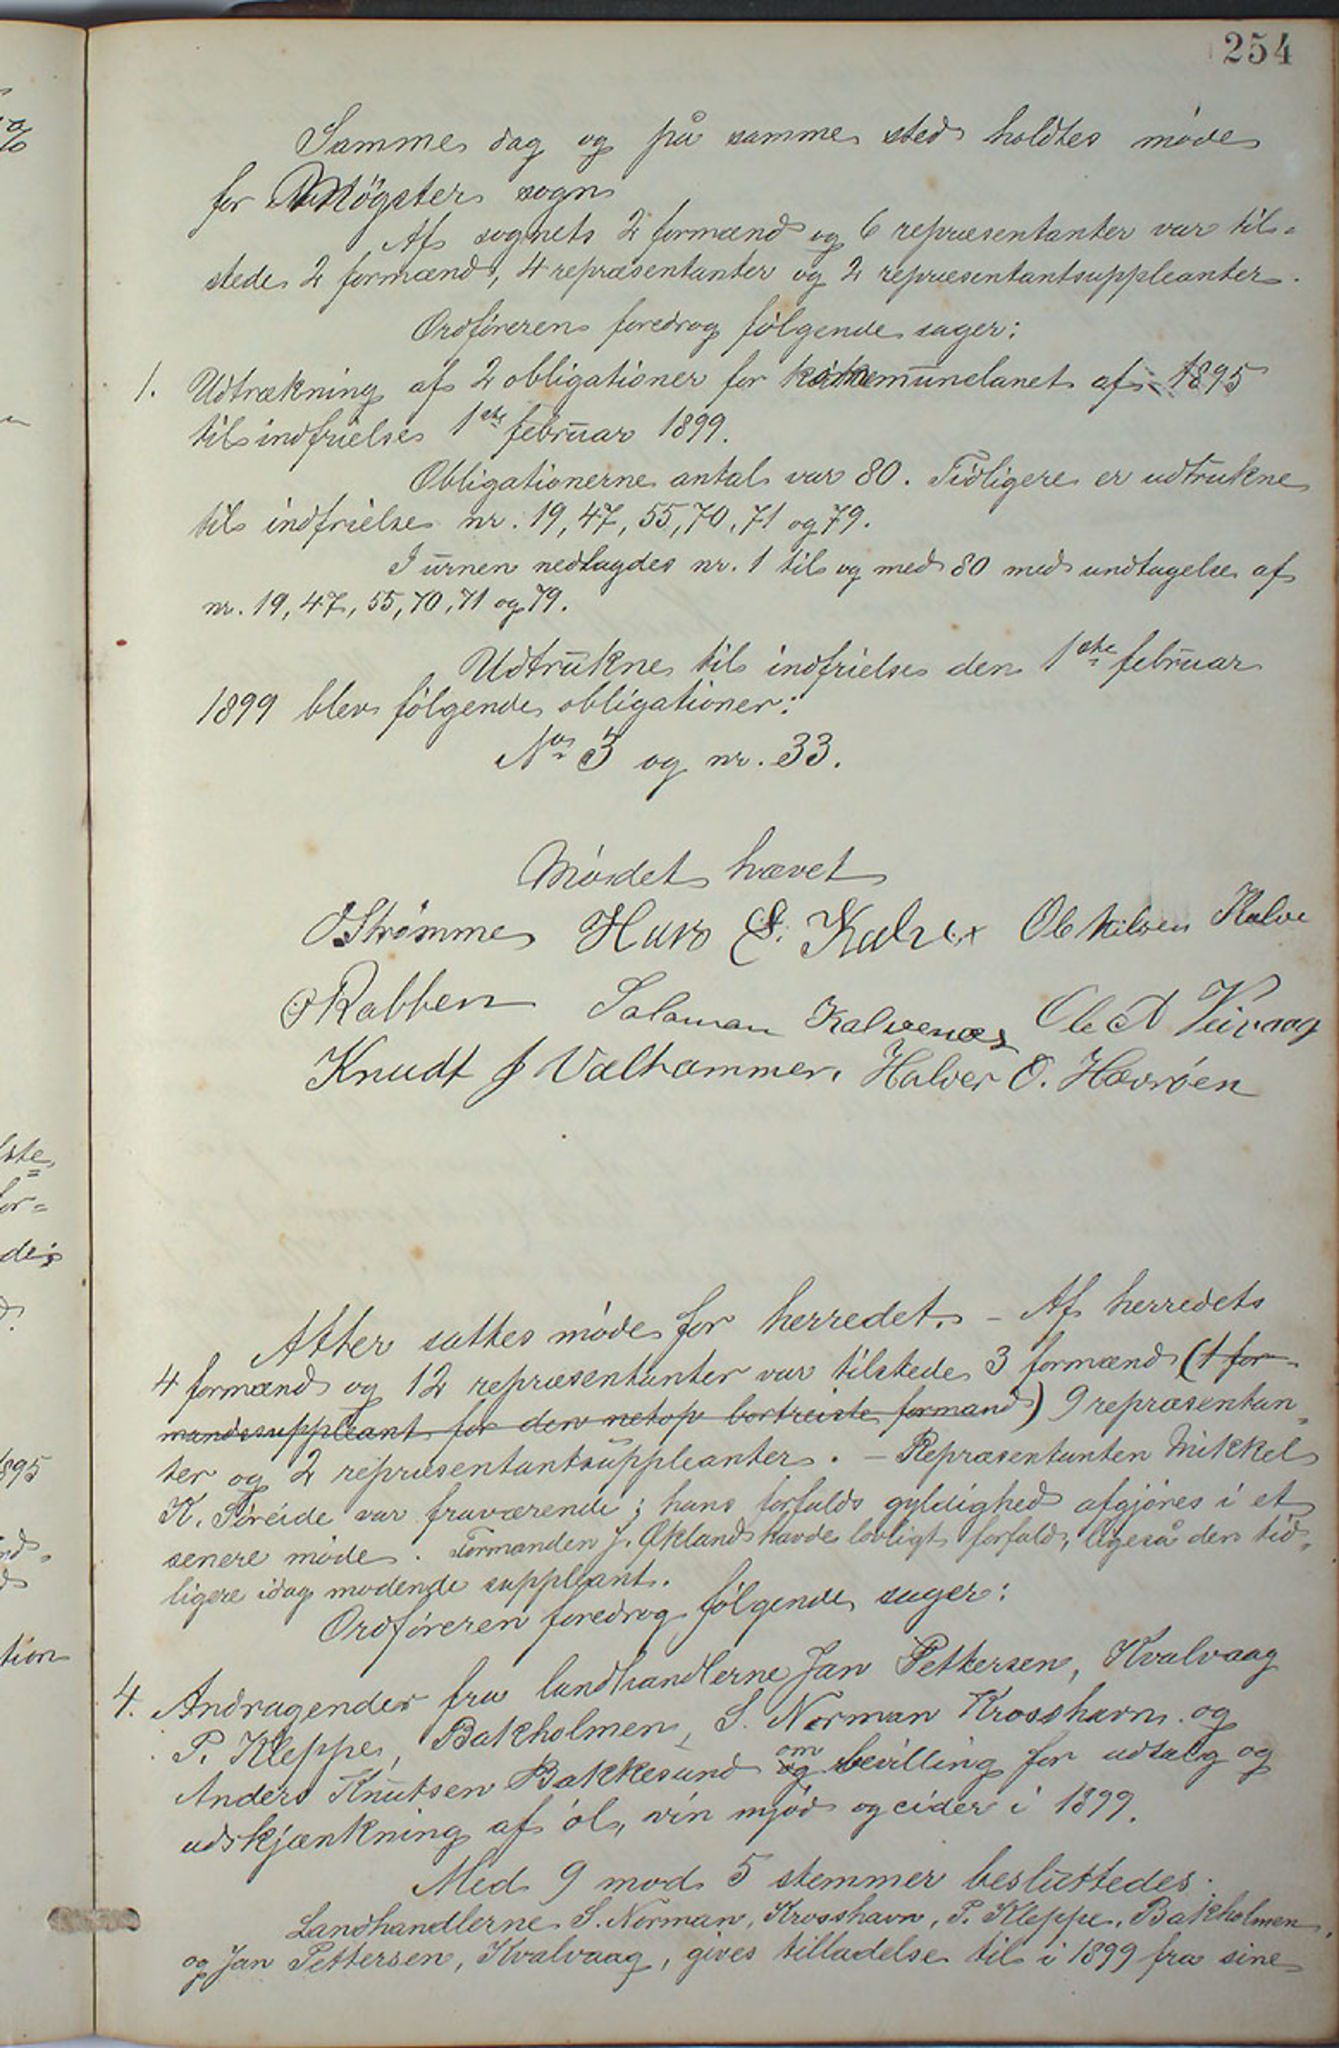 254
Samme dag og på samme sted holdtes møde
for Møgster sogn
Af sognets 2 formænd og 6 repræsentanter var til-
stede 2 formænd, 4 repræsentanter og 2 repræsentantsuppleanter.
Ordføreren foredrog følgende sager:
1. Udtrækning af 2 obligationer for kommunelånet af 1895
til indfrielse 1ste februar 1899.
Obligationerne antal var 80. Tidligere er udtrukne
til indfrielse nr. 19, 47, 55, 70, 71 og 79.
I urnen nedlagdes nr. 1 til og med 80 med undtagelse af
nr. 19, 47, 55, 70, 71 og 79.
Udtrukne til indfrielse den 1ste februar
1899 blev følgende obligationer:
No 3 og nr. 33.
Mødet hævet
O. Strømme Hans E. Kalve Ole Nilsen Kalve
O Rabben Salaman Kalvenæs Ole A Veivaag
Knudt J Valhammer. Halver O. Hævrøen
Atter sattes møde for herredet. - Af herredets
4 formænd og 12 repræsentanter var tilstede 3 formænd (1 for-
mandssuppleant for den netop bortreiste formand) 9 repræsentan-
ter og 2 repræsentantsuppleanter. - Repræsentanten Mikkel
K. Søreide var fraværende; hans forfalds gyldighed afgjøres i et
senere møde. Formanden J. Økland havde lovligt forfald, ligeså den tid-
ligere idag mødende suppleant.
Ordføreren foredrog følgende sager:
4. Andragender fra landhandlerne Jan Pettersen, Kvalvaag
P. Kleppe, Bakholmen, S. Norman Krosshavn og
Anders Knutsen Bakkesund og om bevilling for udsalg og
udskjænkning af øl, vin mjød og cider i 1899.
Med 9 mod 5 stemmer besluttedes.
Landhandlerne S. Norman, Krosshavn, P. Kleppe, Bakholmen,
og Jan Pettersen, Kvalvaag, gives tilladelse til i 1899 fra sine